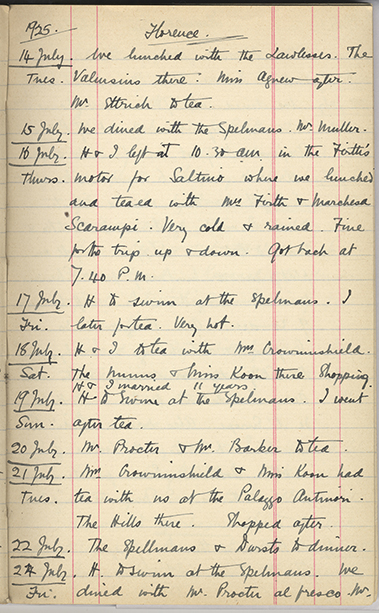 1925. Florence.
14 July. We lunched with the Lawlesses. The
Tues. Valensins there. Miss Agnew after.
Mr to tea.
15 July. We dined with the Spelmans. Mr Muller.
16 July. H & I left at 10.30 am in the Firth's
Thurs. motor for Saltino where we lunched
and teaed with Mrs Firth & Marchesa
Scarampi. Very cold & rained. Fine
for the trip up & down. Got back at
7.40 P.M.
17 July. H to swim at the Spelmans. I
Fri. later for tea. Very hot.
18 July. H & I to tea with Mrs Crowninshield.
Sat. The & Miss Koon there Shopping
H & I married 11 years
19 July. H to Swim at the Spelmans. I went
Sun. after tea.
20 July. Mr. Procter & Mr. Barker to tea.
21 July. Mrs Crowninshield & Miss Koon had
Tues. tea with us at the Palazzo Antinori.
The Hills there. Shopped after.
22 July. The Spellmans & Dursts to dinner.
24 July. H. to swim at the Spelmans. We
Fri. dined with Mr. Procter al fresco. Mr.